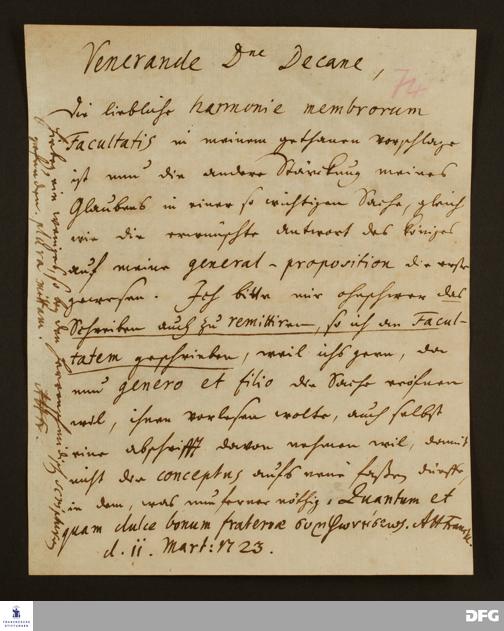 Venerande Dne Decane,
74
Die liebliche harmonie membrorum
Facultatis in meinem gethanen vorschlage
ist nun die andere Stärckung meines
Glaubens in einer so wichtigen Sache, gleich
wie die erwünschte antwort des Königes
auf meine general-proposition die erste
gewesen. Ich bitte mir ohnschwer das
Schreiben auch zu remittiren, so ich an Facul-
tatem geschrieben, weil ichs gern, da
nun genero et filio die Sache eröfnen
wil, ihnen vorlesen wolte, auch selbst
eine abschrifft davon nehmen wil, damit
nicht die conceptus aufs neue faßen dürffe,
in dem, was nu ferner nöthig. Quantum et
quam dulce bonum fraternae συμφωνήσεως. AHFranck.
d. 11. Mart: 1723.
FRANCKESCHE
STIFTUNGEN
DFG